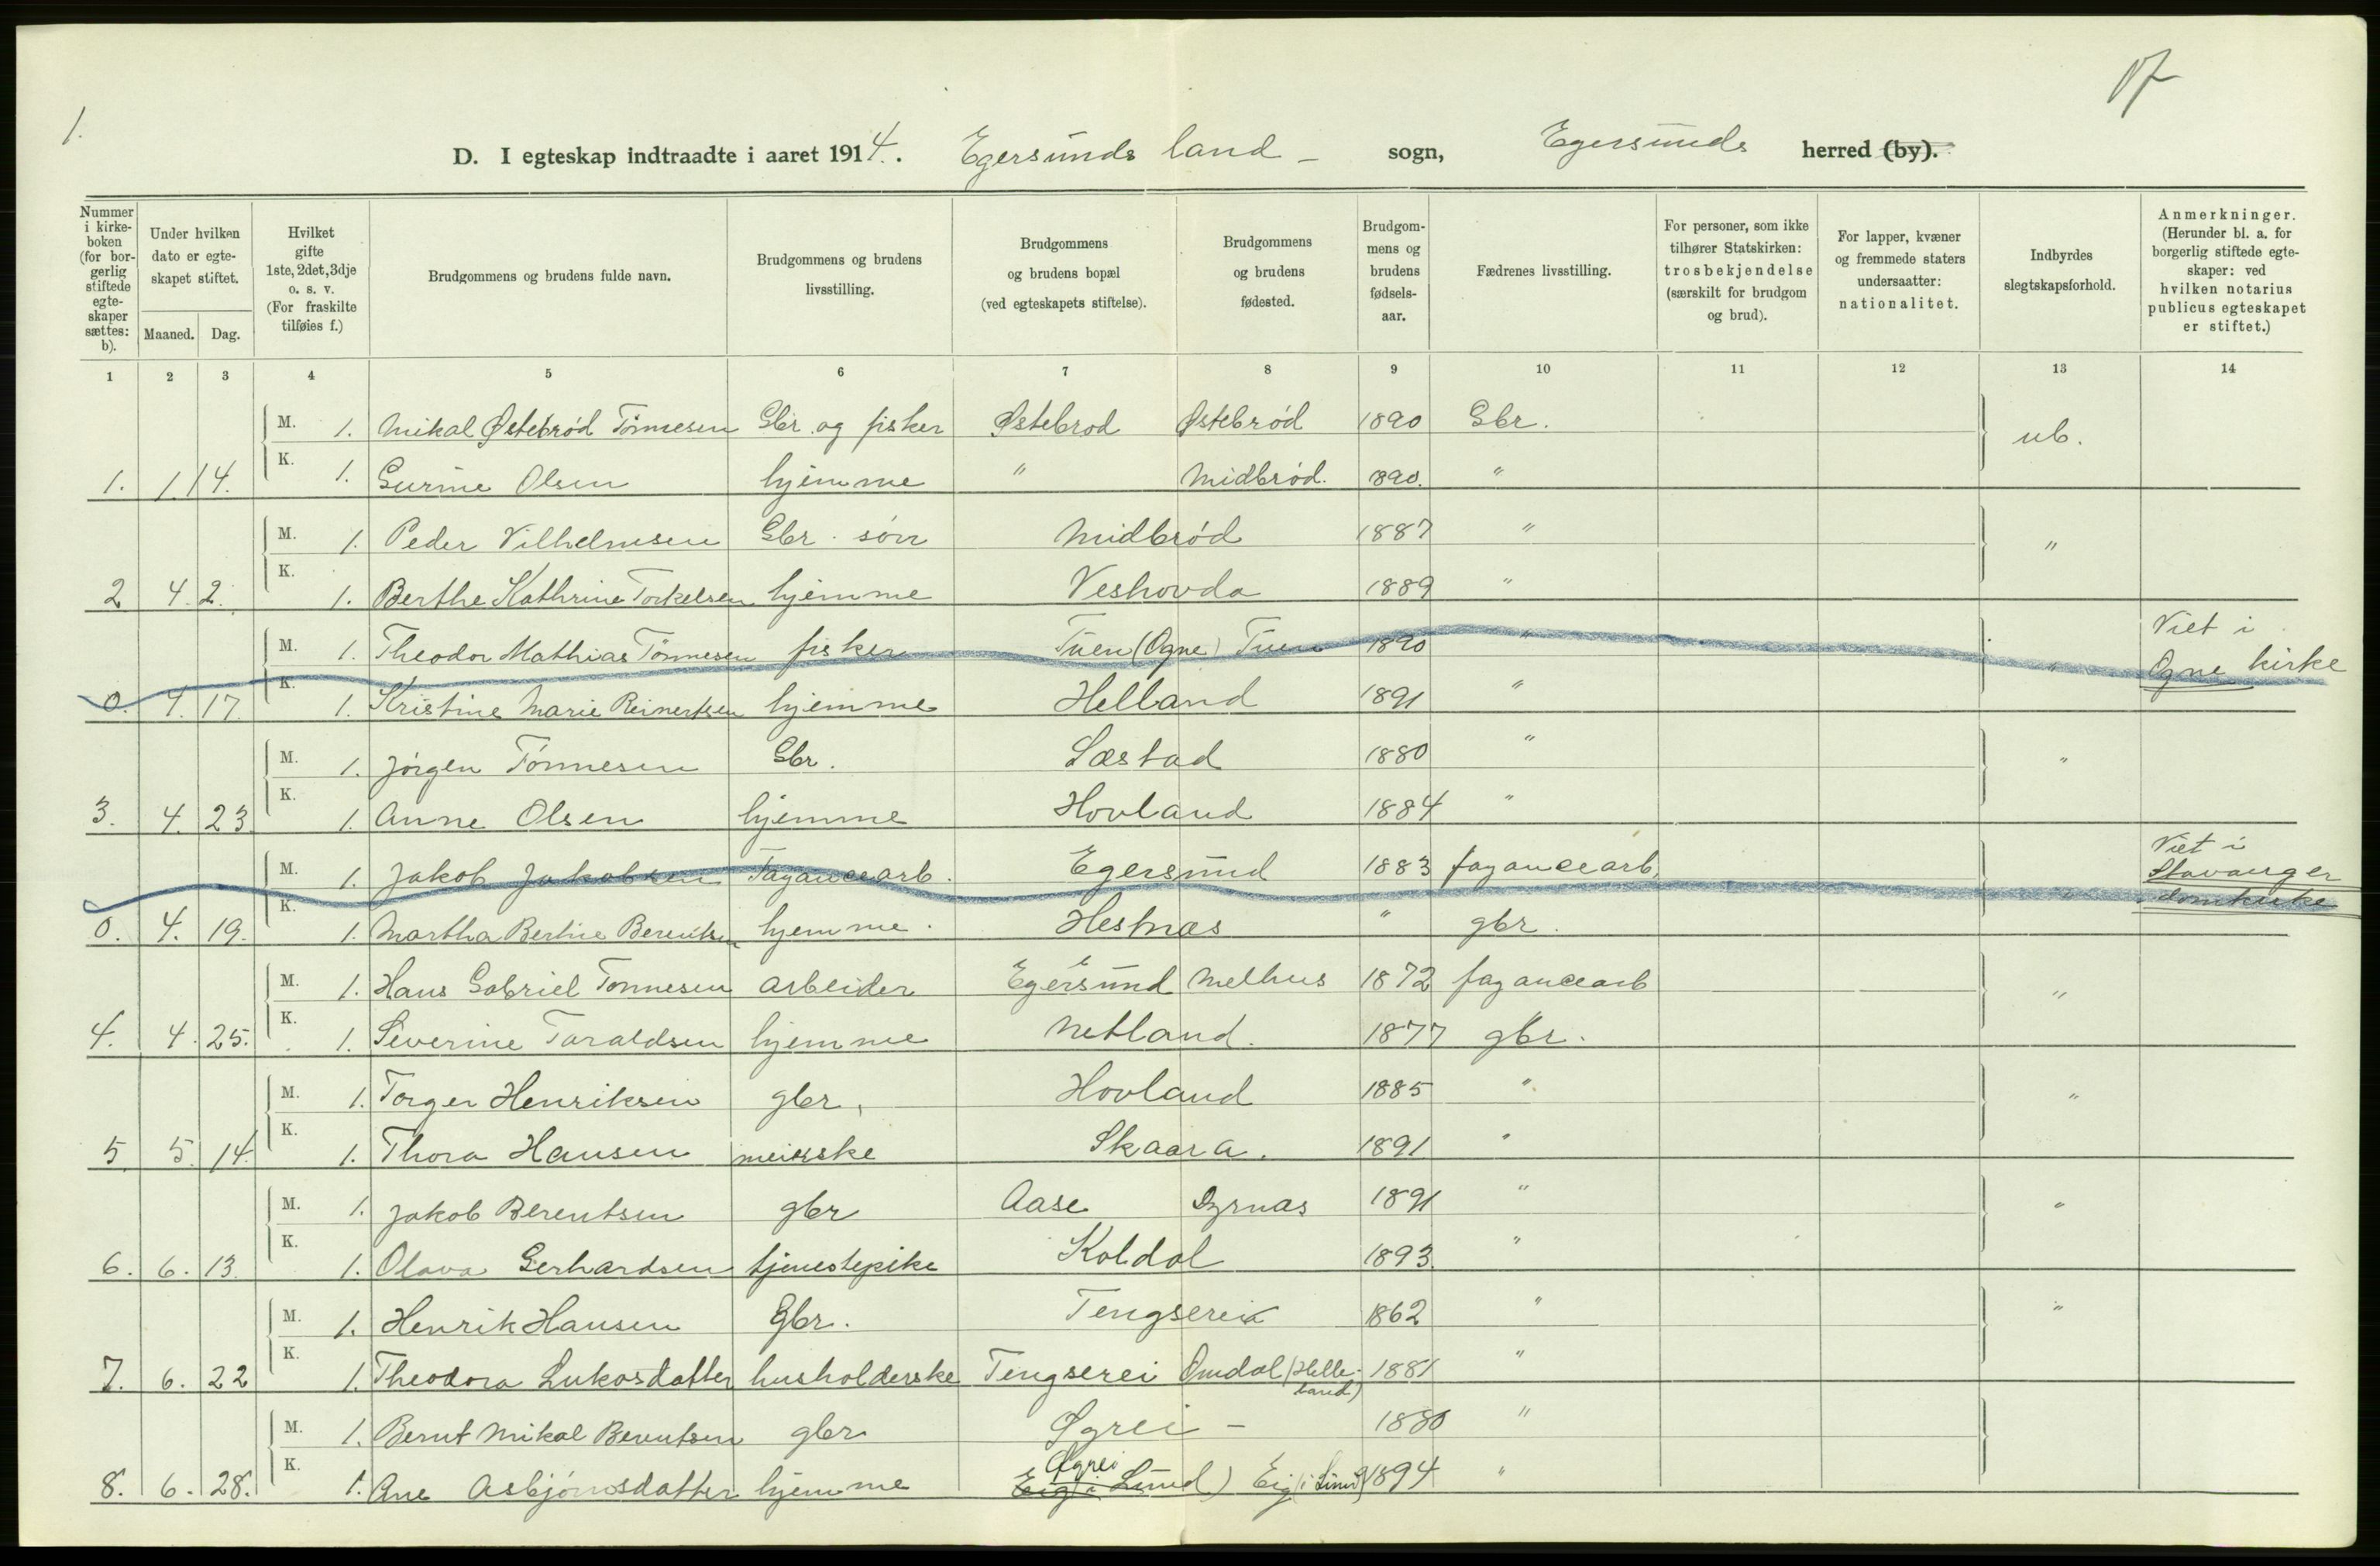 1.
D. I egteskap indtraadte i aaret 1914. Egersunds land - sogn, Egersunds herred (by).
Nummer i kirkeboken (for borgerlig stiftede egteskaper sættes: b).
Under hvilken dato er egteskapet stiftet.
Maaned. Dag.
Hvilket gifte 1ste, 2det, 3dje o. s. v. (For fraskilte tilføies f.)
Brudgommens og brudens fulde navn.
Brudgommens og brudens livsstilling.
Brudgommens og brudens bopæl (ved egteskapets stiftelse).
Brudgommens og brudens fødested.
Brudgommens og brudens fødselsaar.
Fædrenes livsstilling.
For personer, som ikke tilhører Statskirken: trosbekjendelse (særskilt for brudgom og brud).
For lapper, kvæner og fremmede staters undersaatter: nationalitet.
Indbyrdes slegtskapsforhold.
Anmerkninger. (Herunder bl. a. for borgerlig stiftede egteskaper: ved hvilken notarius publicus egteskapet er stiftet.)
1 2 3 4 5 6 7 8 9 10 11 12 13 14
M. 1. Mikal Østebrød Tønnesen Gbr. og fisker Østebrød Østebrød 1890 Gbr. ub.
1. 1. 14. K. 1. Gurine Olsen hjemme " Midbrød. 1890. "
M. 1. Peder Vilhelmsen Gbr. søn Midbrød 1887 " "
2 4. 2. K. 1. Berthe Kathrine Torkelsen hjemme Veshovda 1889 "
M. 1. Theodor Mathias Tønnesen fisker Tuen (Ogne) Tuen 1890 " " Viet i Ogne kirke
0. 4. 17. K. 1. Kristine Marie Reinertsen hjemme Helland 1891 "
M. 1. Jørgen Tønnesen Gbr. Sæstad 1880 " "
3. 4. 23. K. 1. Anne Olsen hjemme Hovland 1884 "
M. 1. Jakob Jakobsen Fayancearb. Egersund 1883 fayancearb. " Viet i Stavanger domkirke
0. 4. 19. K. 1. Martha Bertine Berentsen hjemme. Hestnæs " gbr.
M. 1. Hans Gabriel Tønnesen arbeider Egersund Melhus 1872 fayancearb "
4. 4. 25. K. 1. Severine Taraldsen hjemme Netland. 1877 gbr.
M. 1. Torger Henriksen gbr. Hovland 1885 " "
5. 5. 14. K. 1. Thora Hansen meierske Skaara. 1891 "
M. 1. Jakob Berentsen gbr Aase Dyrnæs 1891 " "
6. 6. 13. K. 1. Olava Gerhardsen tjenestepike Koldal 1893. "
M. 1. Henrik Hansen Gbr. Tengserei 1862 " "
7. 6. 22 K. 1. Theodora Lukasdatter husholderske Tengserei Omdal (Helleland) 1881 "
M. 1. Bernt Mikal Berentsen gbr Øgrei - 1880 "
8. 6. 28. K. 1. Ane Asbjørnsdatter hjemme Øgrei Eig (i Lund) Eig (i Lund) 1894 "